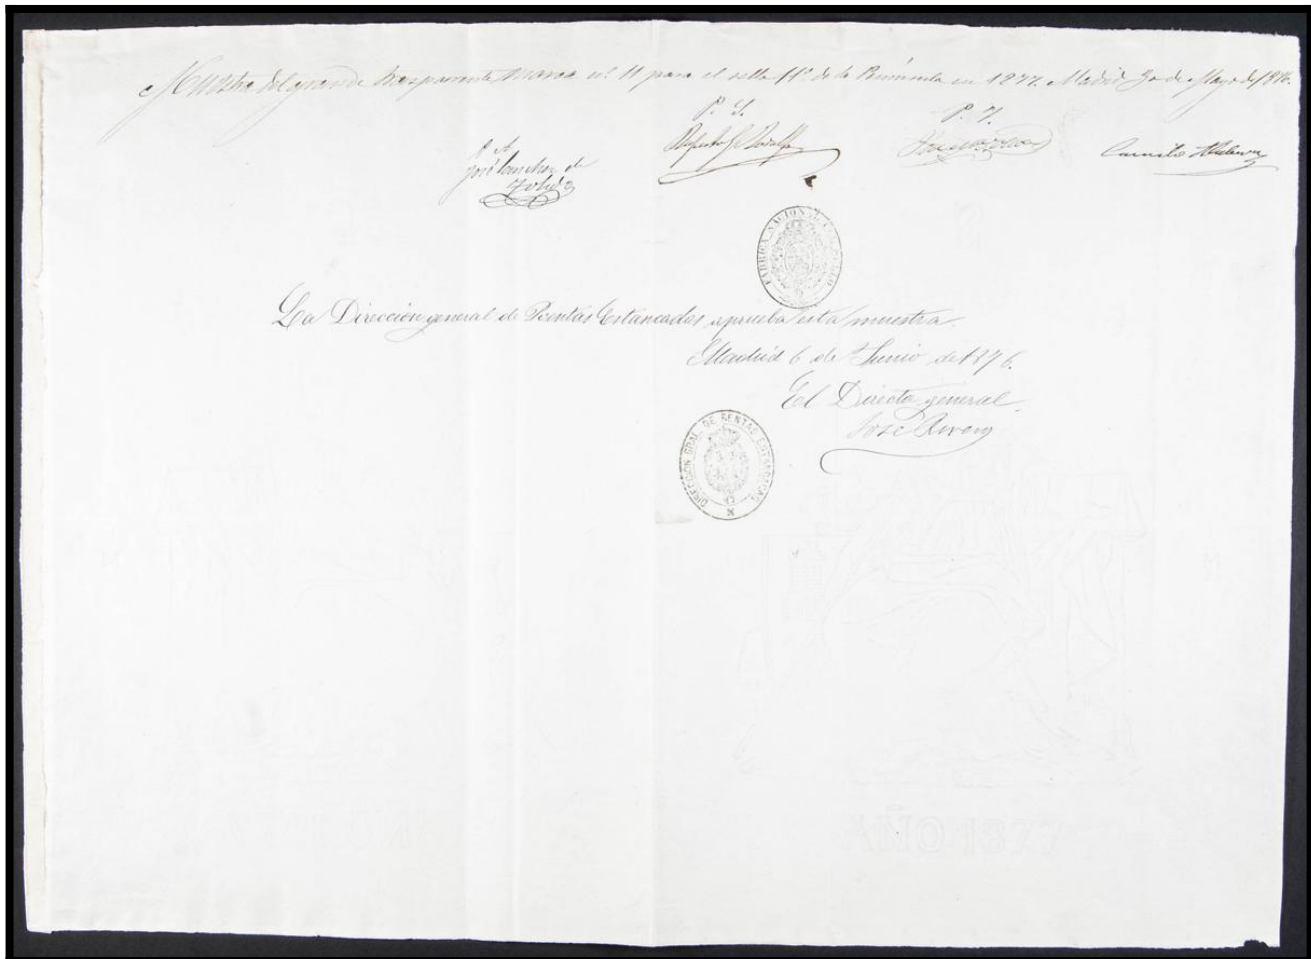 Muestra del grande trasparente marca nº 11 para el sello 11º de la Península en 1877. Madrid 30 de Mayo de 1876.
P. S.
P. Y.
P. A.
José Sanchez de
Toledo
Camilo
FABRICA NACIONAL
La Dirección general de Rentas Estancadas aprueba esta muestra.
Madrid 6 de Junio de 1876.
El Director general
José Rivero
DIRECCION GRAL. DE RENTAS ESTANCADAS
AÑO 1877